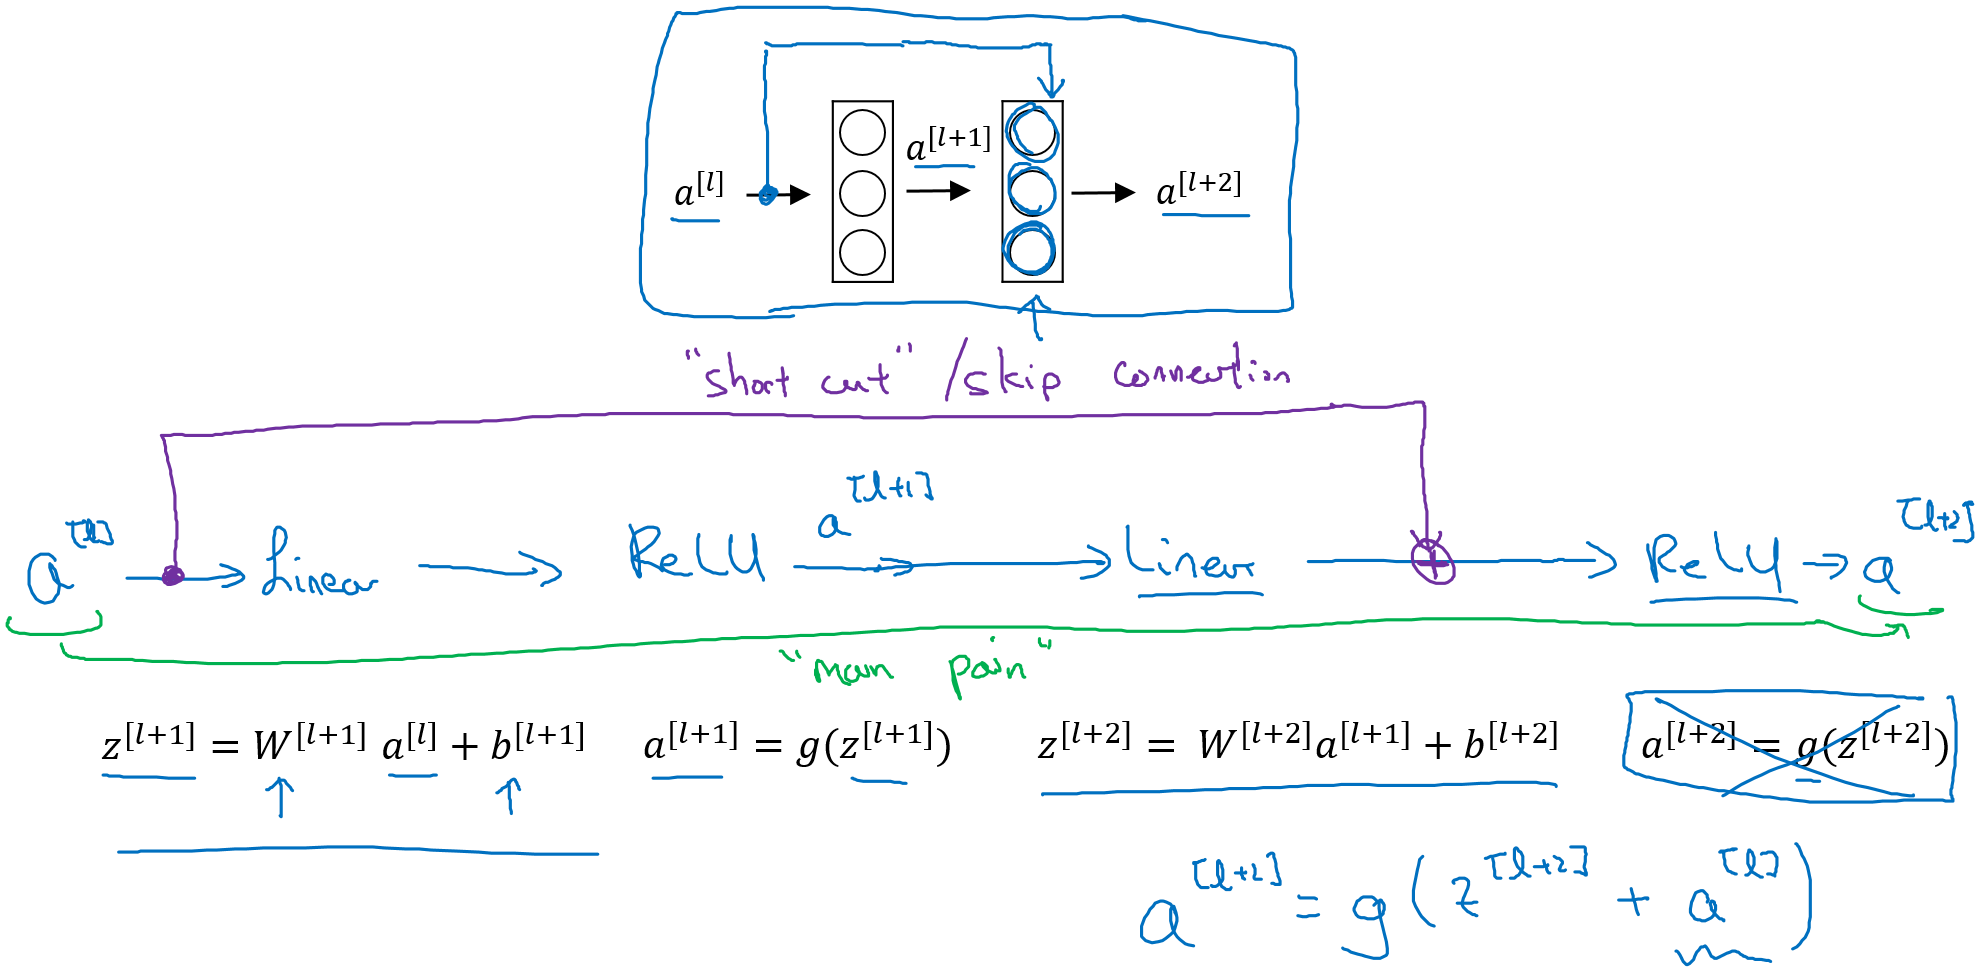 a^[l] a^[l+1] a^[l+2]
"short cut" / skip connection
a^[l] → Linear → ReLU a^[l+1] → Linear → ReLU → a^[l+2]
"main path"
z^[l+1] = W^[l+1] a^[l] + b^[l+1] a^[l+1] = g(z^[l+1]) z^[l+2] = W^[l+2] a^[l+1] + b^[l+2] a^[l+2] = g(z^[l+2])
a^[l+2] = g(z^[l+2] + a^[l])